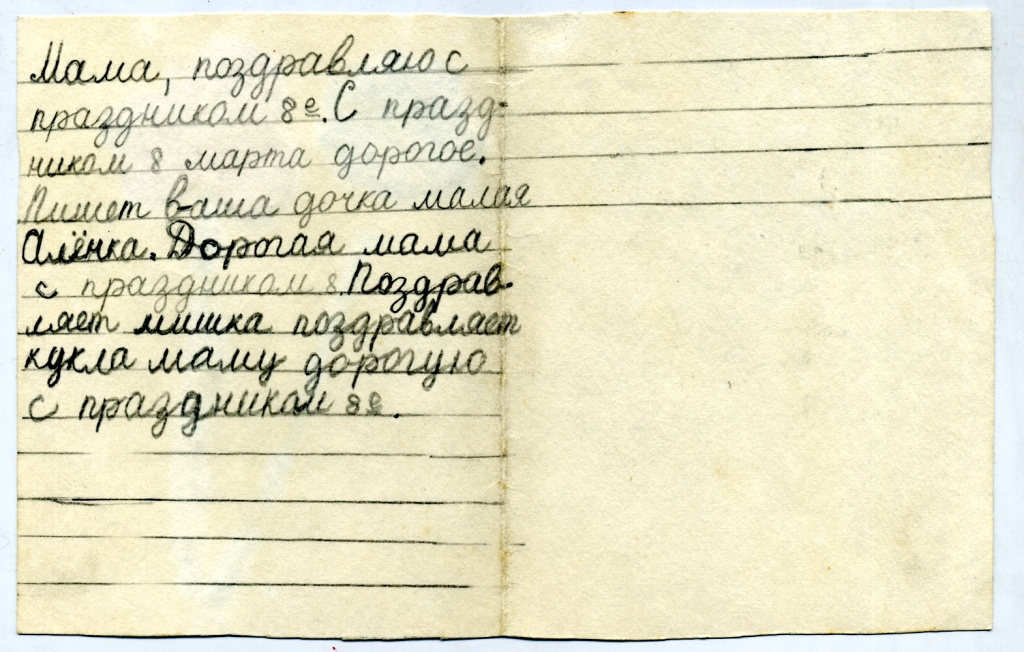 Мама, поздравляю с
праздником 8е. С празд-
ником 8 марта дорогое.
Пишет ваша дочка малая
Алёнка. Дорогая мама
с праздником 8. Поздрав-
ляет мишка поздравляет
кукла маму дорогую
с праздником 8е.